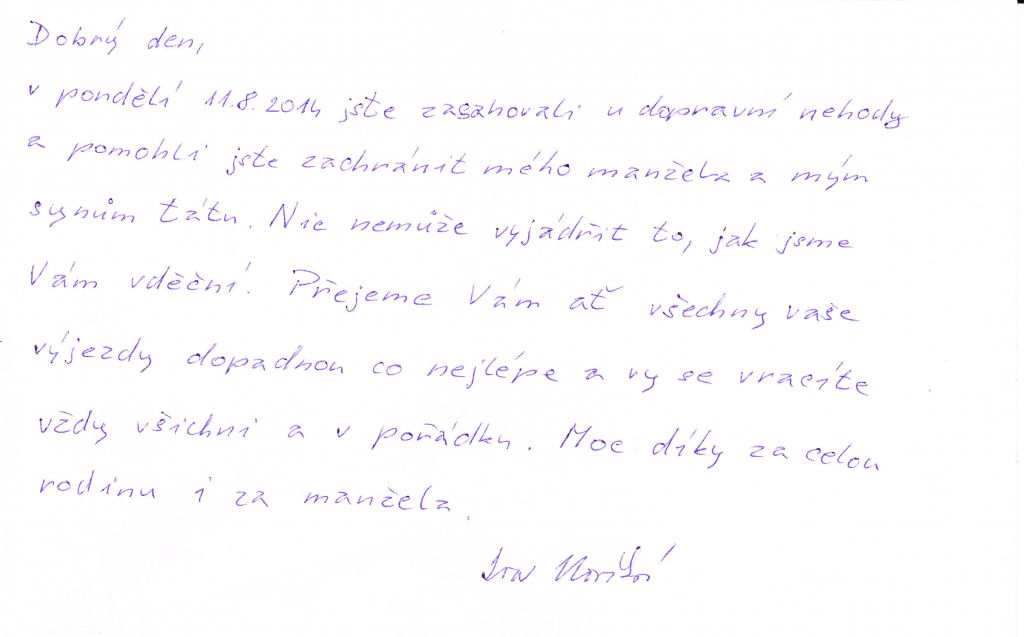 Dobrý den,
v pondělí 11.8.2014 jste zasahovali u dopravní nehody
a pomohli jste zachránit mého manžela a mým
synům tátu. Nic nemůže vyjádřit to, jak jsme
Vám vděční. Přejeme Vám ať všechny vaše
výjezdy dopadnou co nejlépe a vy se vracíte
vždy všichni a v pořádku. Moc díky za celou
rodinu i za manžela.